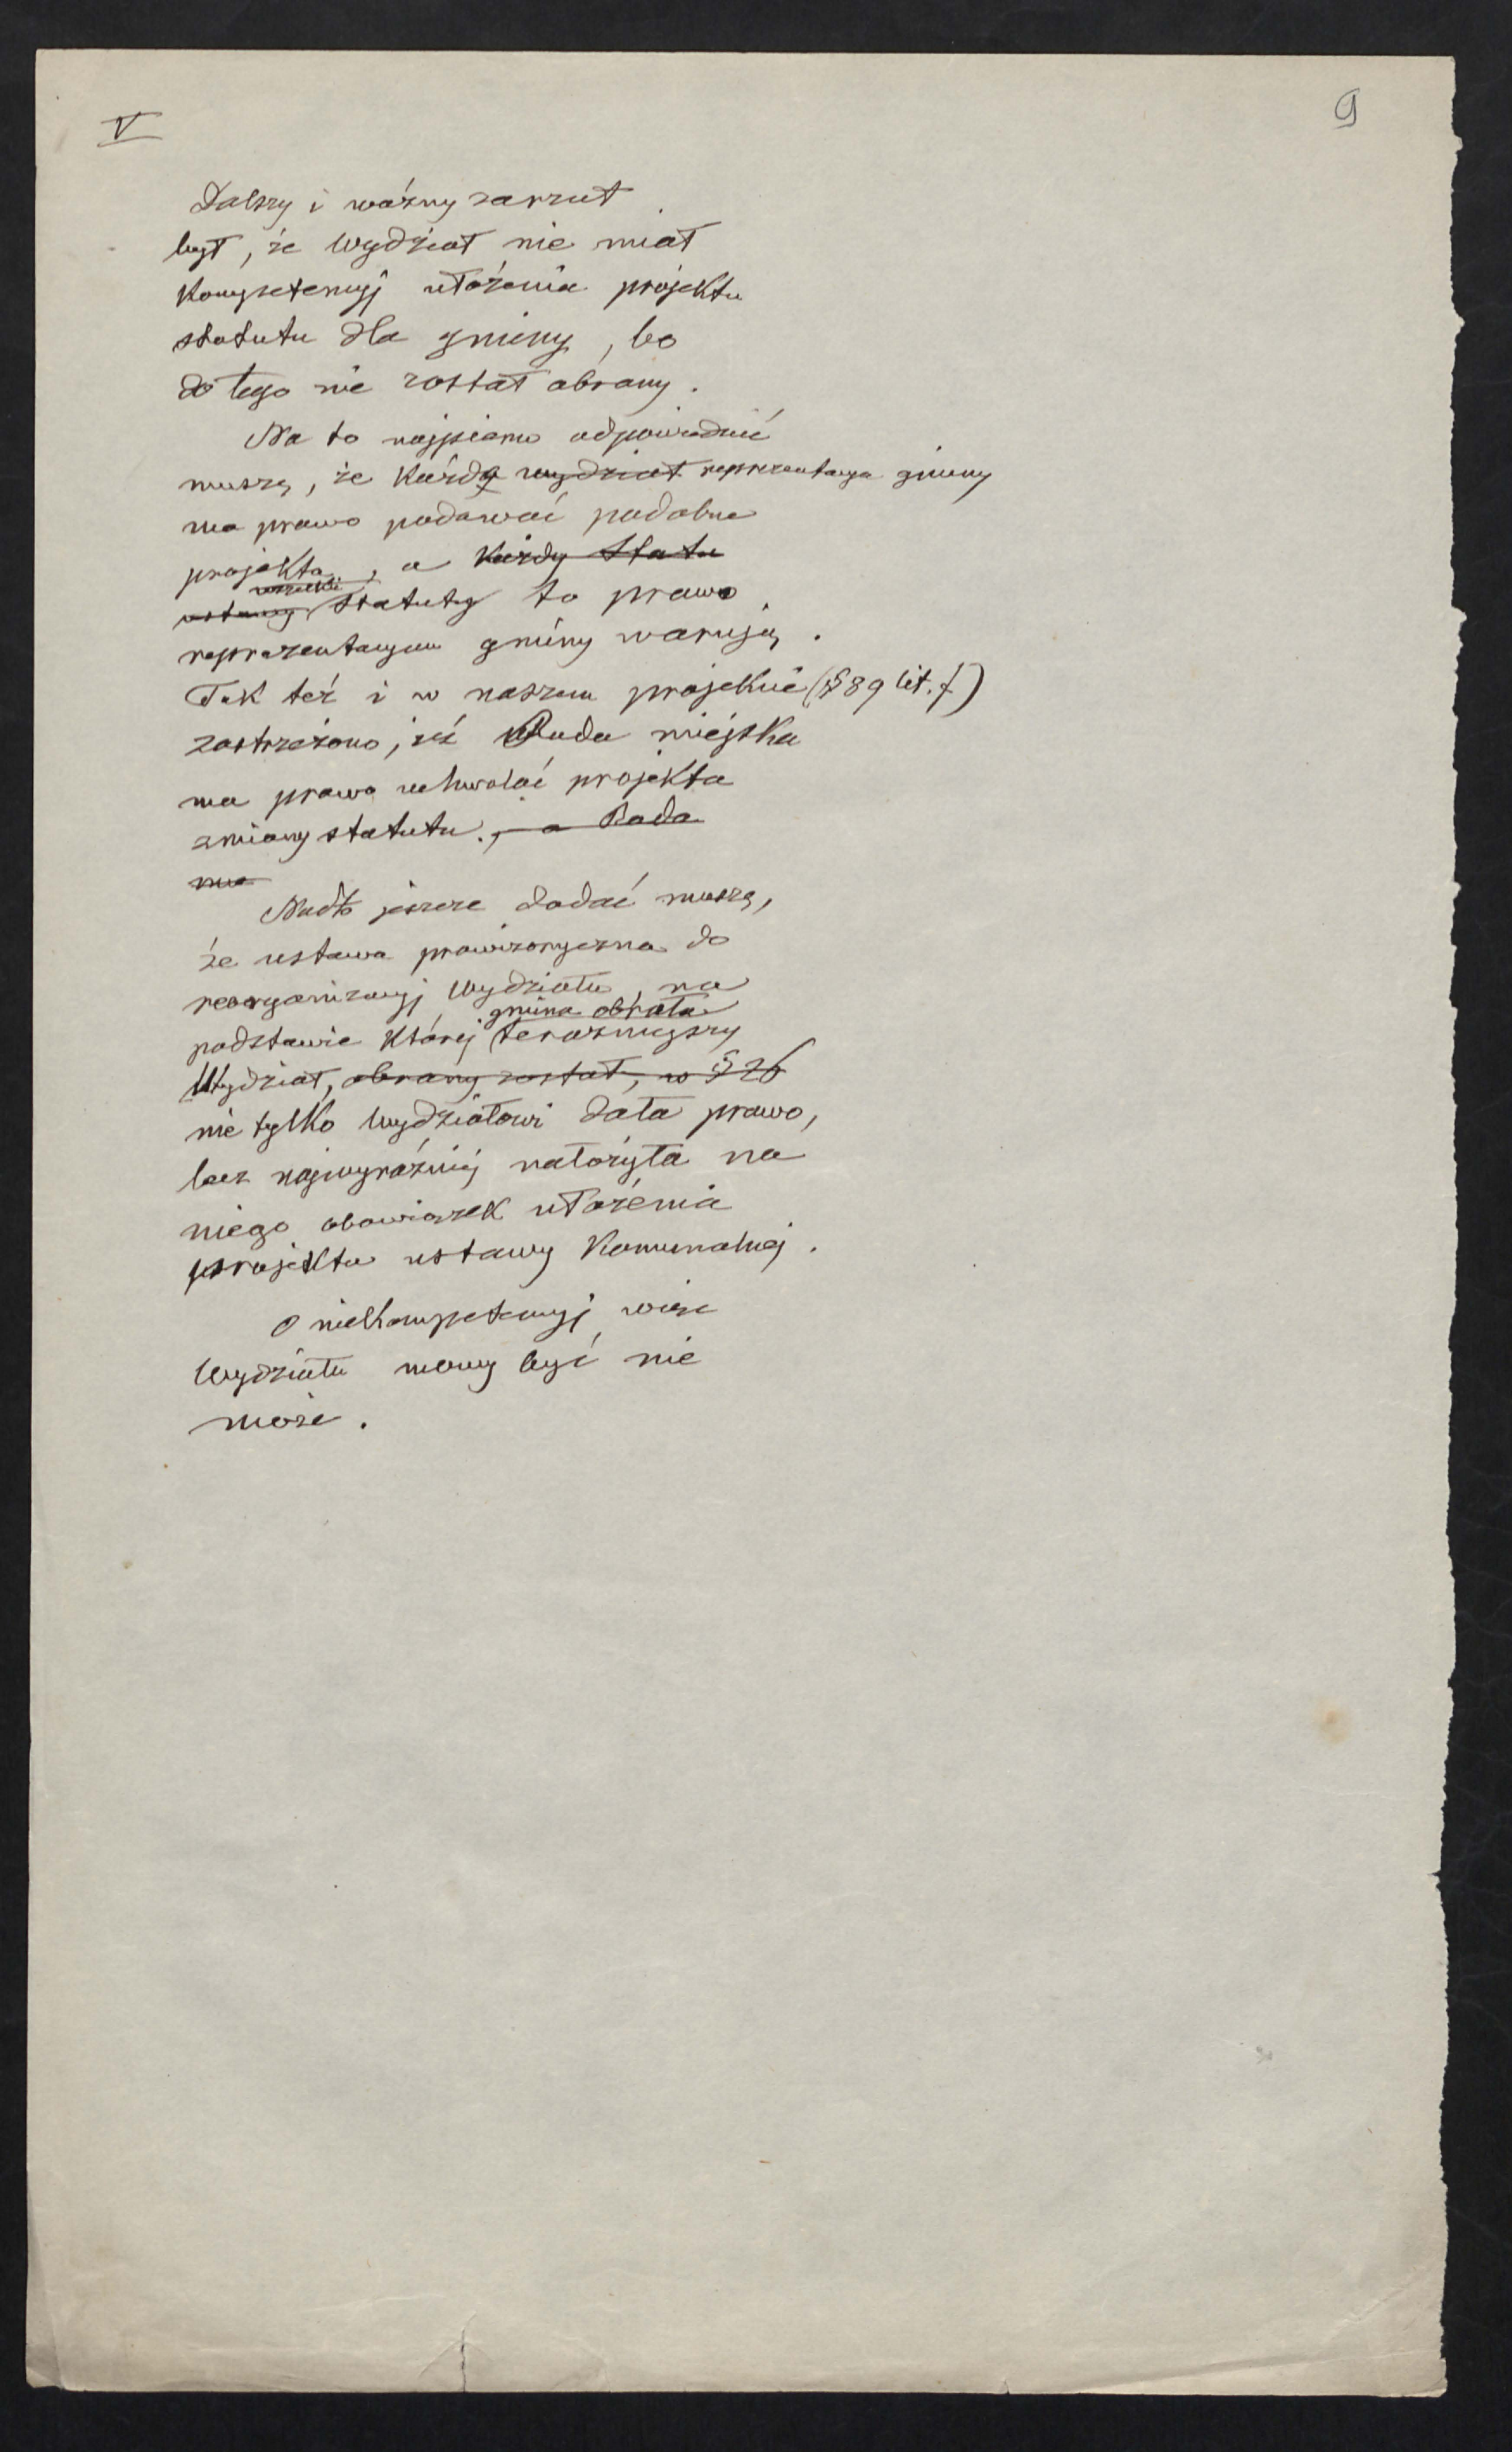 V
9
Dalszy i ważny zarzut
był, że Wydział nie miał
Kompetencyj ułożenia projektu
statutu dla gminy, bo
do tego nie został obrany.
Na to najpierw odpowiedzieć
muszę, że Każda wydział reprezentacya gminy
ma prawo podawać podobne
projekta, a Każdy Statu
wszelkie
ustawy Statuty to prawo
reprezentacyom gminy warują.
Tak też i w naszem projekcie (§ 89 lit. f)
zastrzeżono, iż Rada miejska
ma prawo uchwalać projekta
zmiany statutu., a Rada
ma
Nadto jeszcze dodać muszę,
że ustawa prowizoryczna do
reorganizacyj Wydziału, na
gmina obrała
podstawie Której teraźniejszy
Wydział, obrany został, w § 26
nie tylko Wydziałowi dała prawo,
lecz najwyraźniej nałożyła na
niego obowiązek ułożenia
projektu ustawy Komunalnej.
O nieKompetencyj więc
Wydziału mowy być nie
może.